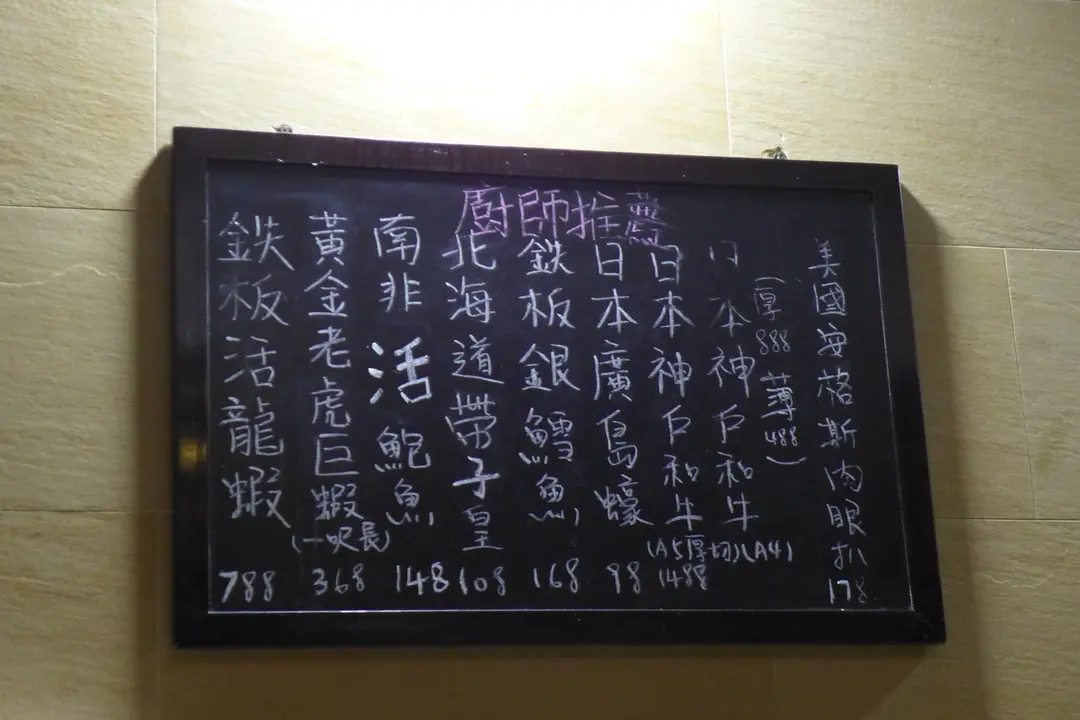 廚師推薦
美國安格斯肉眼扒 178
日本神戶和牛 (A4)
(厚888 薄488)
日本神戶和牛 (A5厚切) 1488
日本廣島蠔 98
鉄板銀鱈魚 168
北海道帶子皇 108
南非活鮑魚 148
黃金老虎巨蝦 (一呎長) 368
鉄板活龍蝦 788